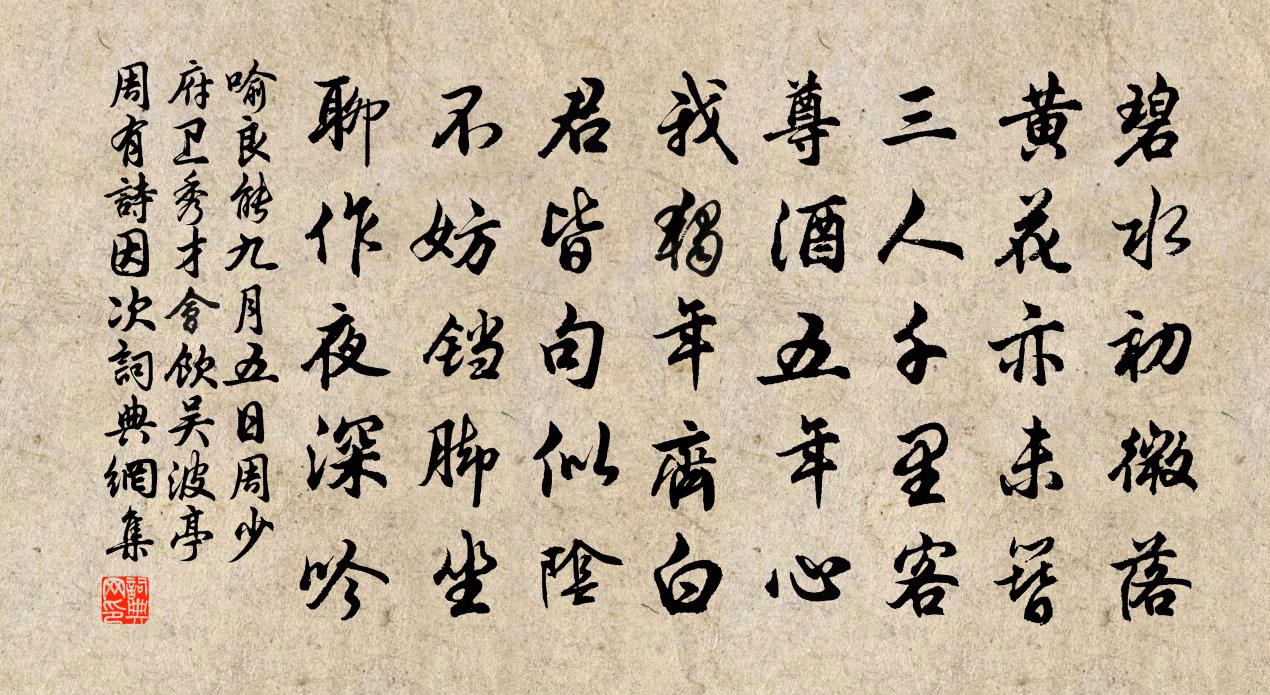 碧水初微落
黄花亦未簪
三人千里客
尊酒五年心
我獨年齊白
君皆句似陰
不妨铛脚坐
聊作夜深吟
喻良能九月五日周少
府卫秀才會飲吴波亭
周有詩因次詞典網集
詞典
网印